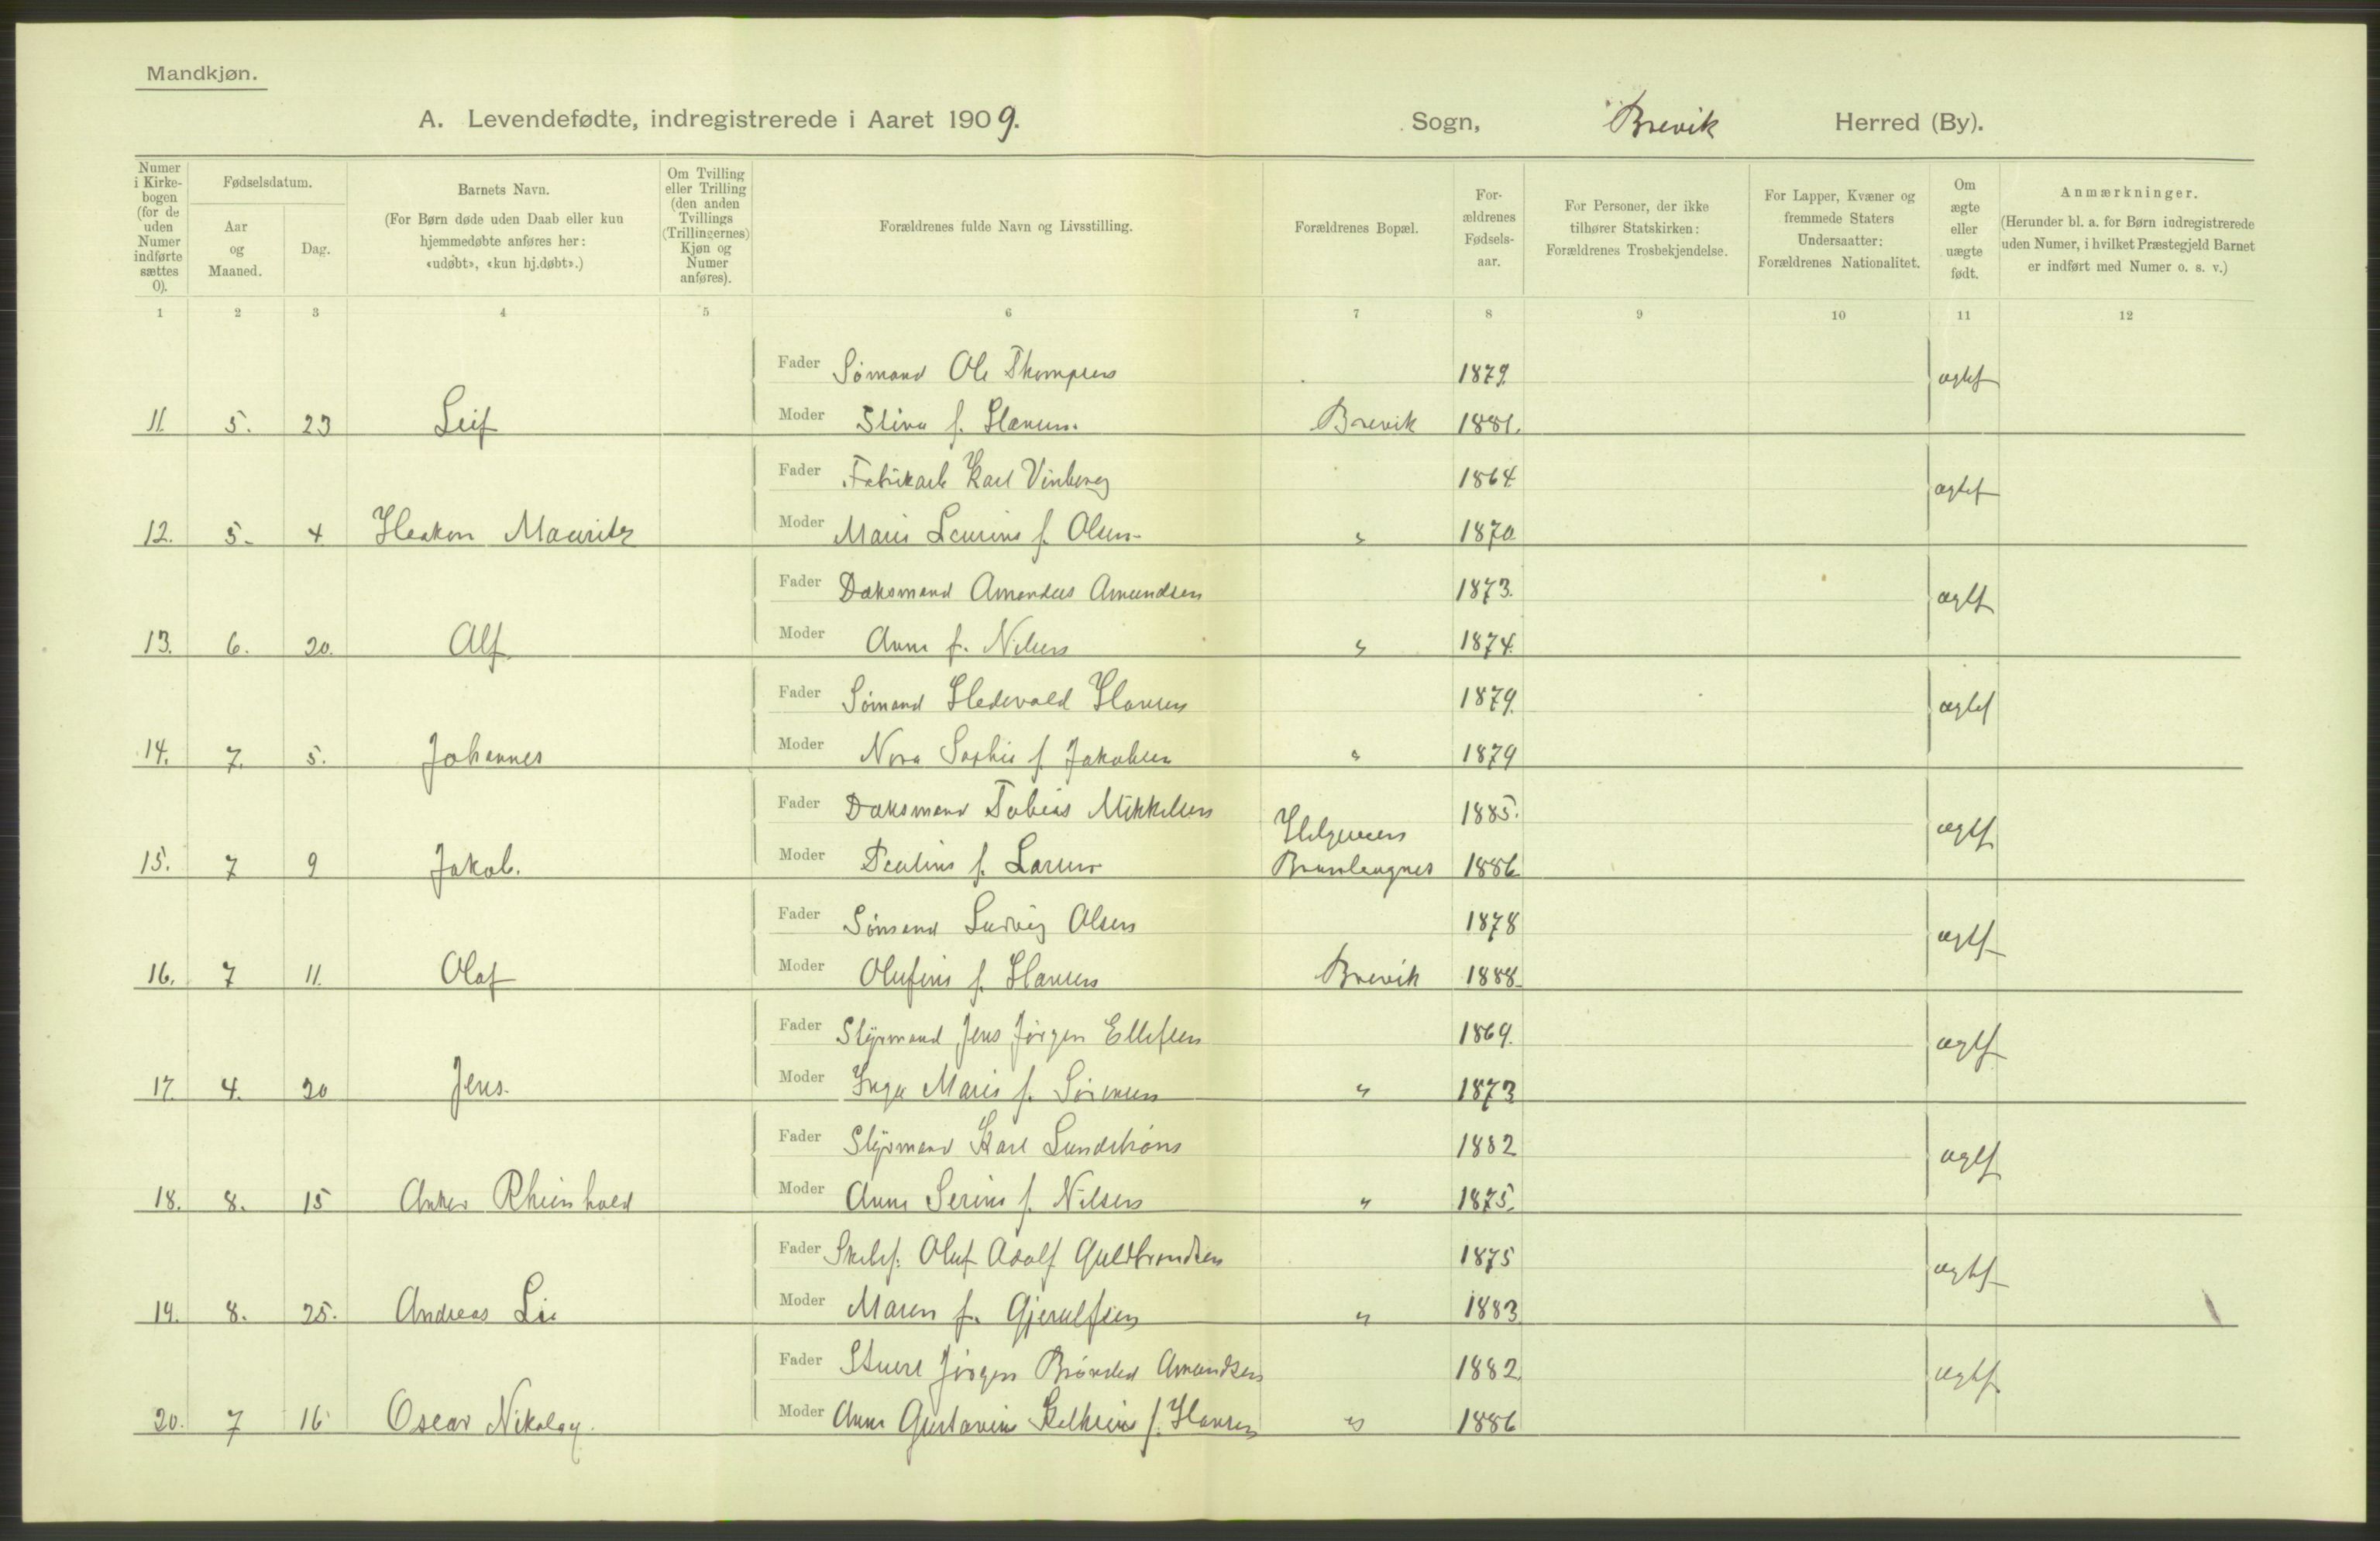 Mandkjøn.
A. Levendefødte, indregistrerede i Aaret 1909. Sogn, Brevik Herred (By).
Numer i Kirkebogen (for de uden Numer indførte sættes 0).
Fødselsdatum.
Aar og Maaned.
Dag.
Barnets Navn.
(For Børn døde uden Daab eller kun hjemmedøbte anføres her: «udøbt», «kun hj.døbt».)
Om Tvilling eller Trilling (den anden Tvillings (Trillingernes) Kjøn og Numer anføres).
Forældrenes fulde Navn og Livsstilling.
Forældrenes Bopæl.
Forældrenes Fødselsaar.
For Personer, der ikke tilhører Statskirken: Forældrenes Trosbekjendelse.
For Lapper, Kvæner og fremmede Staters Undersaatter: Forældrenes Nationalitet.
Om ægte eller uægte født.
Anmærkninger.
(Herunder bl. a. for Børn indregistrerede uden Numer, i hvilket Præstegjeld Barnet er indført med Numer o. s. v.)
1 2 3 4 5 6 7 8 9 10 11 12
Fader Sømand Ole Thompsen 1879 ægtef
11. 5. 23 Leif Moder f. Hansen. Brevik 1881.
Fader Fabrikarb Karl Vinberg 1864 ægtef
12. 5. 4 Haakon Mauritz Moder Marie Laurine f. Olsen " 1870
Fader Daksmand Amandus Amundsen 1873. ægtf
13. 6. 20. Alf Moder Anna f. Nilsen " 1874.
Fader Sømand Hedevald Hansen 1879. ægtef
14. 7. 5. Johannes Moder Nora Sophie f. Jakobsen " 1879
Fader Daksmand Tobias Mikkelsen 1885. ægtf
15. 7 9 Jakob. Moder f. Larsen Brunlangnes 1886
Fader Sømand Ludvig Olsen 1878 ægtf
16. 7 11. Olaf Moder Olufine f. Hansen Brevik 1888.
Fader Styrmand Jens Jørgen Ellefsen 1869. ægtf
17. 4. 20 Jens. Moder Inga Marie f. Sørensen " 1873
Fader Styrmand Karl Lundstrøm 1882 ægtf
18. 8. 15 Anker Rheinhold Moder Anna Serine f. Nilsen " 1875.
Fader Skibsf. Oluf Adolf Guldbrandsen 1875 ægtf
19. 8. 25. Andreas Lie Moder Maren f. Gjerulfsen " 1883
Fader Stuert Jørgen Brønsted Amundsen 1882 ægtf
20. 7 16 Oscar Nikolay. Moder Anna Gustavine Kathrine f. Hansen " 1886